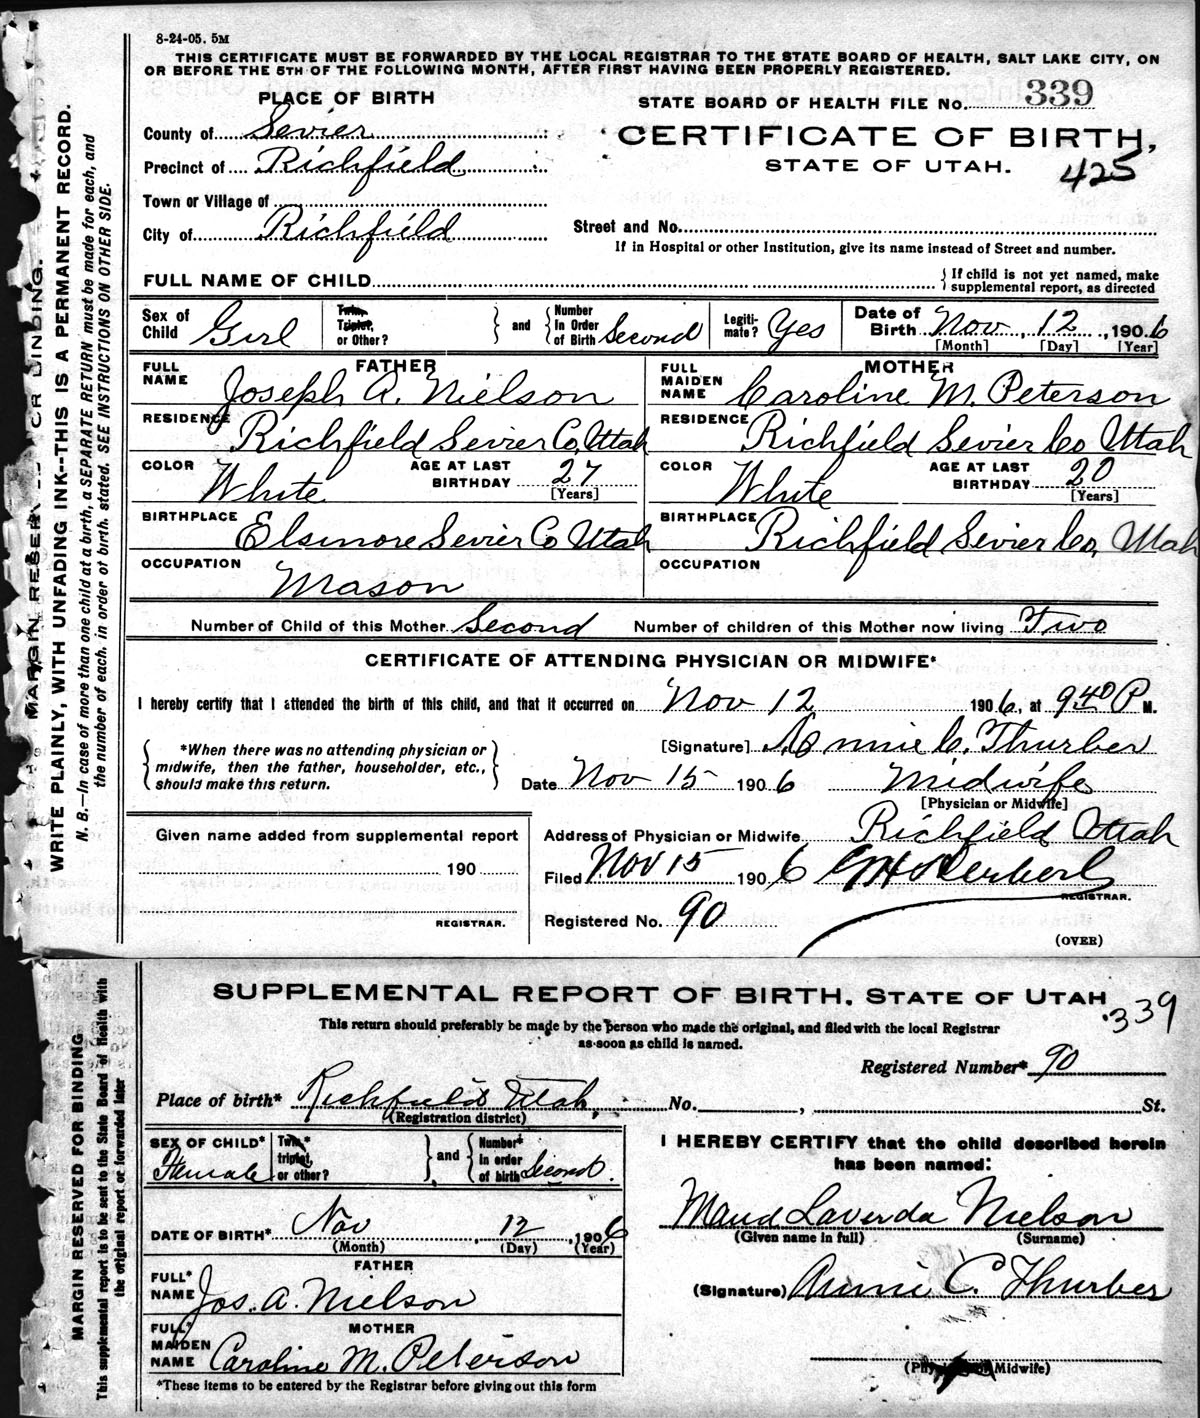 8-24-05. 5M
THIS CERTIFICATE MUST BE FORWARDED BY THE LOCAL REGISTRAR TO THE STATE BOARD OF HEALTH, SALT LAKE CITY, ON
OR BEFORE THE 5TH OF THE FOLLOWING MONTH, AFTER FIRST HAVING BEEN PROPERLY REGISTERED.
PLACE OF BIRTH
STATE BOARD OF HEALTH FILE No. 339
County of Sevier
CERTIFICATE OF BIRTH,
Precinct of Richfield
STATE OF UTAH.
425
Town or Village of
City of Richfield
Street and No.
If in Hospital or other Institution, give its name instead of Street and number.
FULL NAME OF CHILD
{ If child is not yet named, make
supplemental report, as directed
Sex of Child Girl
Twin, Triplet, or Other?
} and { Number In Order of Birth Second
Legiti- mate? Yes
Date of Birth Nov, 12, 1906
[Month] [Day] [Year]
FATHER
FULL NAME Joseph A. Nielson
MOTHER
FULL MAIDEN NAME Caroline M. Peterson
RESIDENCE Richfield Sevier Co, Utah
RESIDENCE Richfield Sevier Co Utah
COLOR White AGE AT LAST BIRTHDAY 27 [Years]
COLOR White AGE AT LAST BIRTHDAY 20 [Years]
BIRTHPLACE Elsinore Sevier Co Utah
BIRTHPLACE Richfield Sevier Co, Utah
OCCUPATION Mason
OCCUPATION
Number of Child of this Mother Second Number of children of this Mother now living Two
CERTIFICATE OF ATTENDING PHYSICIAN OR MIDWIFE*
I hereby certify that I attended the birth of this child, and that it occurred on Nov 12 1906, at 9 40 P M.
{ *When there was no attending physician or midwife, then the father, householder, etc., should make this return. }
[Signature] Annie C. Thurber
Date Nov 15 1906 Midwife
[Physician or Midwife]
Given name added from supplemental report
190
REGISTRAR.
Address of Physician or Midwife Richfield Utah
Filed Nov 15 1906
REGISTRAR.
Registered No. 90
(OVER)
MARGIN RESER FOR BINDING.
WRITE PLAINLY, WITH UNFADING INK--THIS IS A PERMANENT RECORD.
N. B.—In case of more than one child at a birth, a SEPARATE RETURN must be made for each, and
the number of each, in order of birth, stated. SEE INSTRUCTIONS ON OTHER SIDE.
SUPPLEMENTAL REPORT OF BIRTH, STATE OF UTAH
339
This return should preferably be made by the person who made the original, and filed with the local Registrar
as soon as child is named.
Registered Number* 90
Place of birth* Richfield Utah, No. , St.
(Registration district)
SEX OF CHILD* Female
Twin,* triplet, or other?
} and { Number* in order of birth Second.
DATE OF BIRTH* Nov, 12, 1906
(Month) (Day) (Year)
FATHER
FULL* NAME Jos. A. Nielson
MOTHER
FULL* MAIDEN NAME Caroline M. Peterson
*These items to be entered by the Registrar before giving out this form
I HEREBY CERTIFY that the child described herein
has been named:
Maud Laverda Nielson
(Given name in full) (Surname)
(Signature) Annie C. Thurber
(Physician or Midwife)
MARGIN RESERVED FOR BINDING
This supplemental report is to be sent to the State Board of Health with
the original report or forwarded later